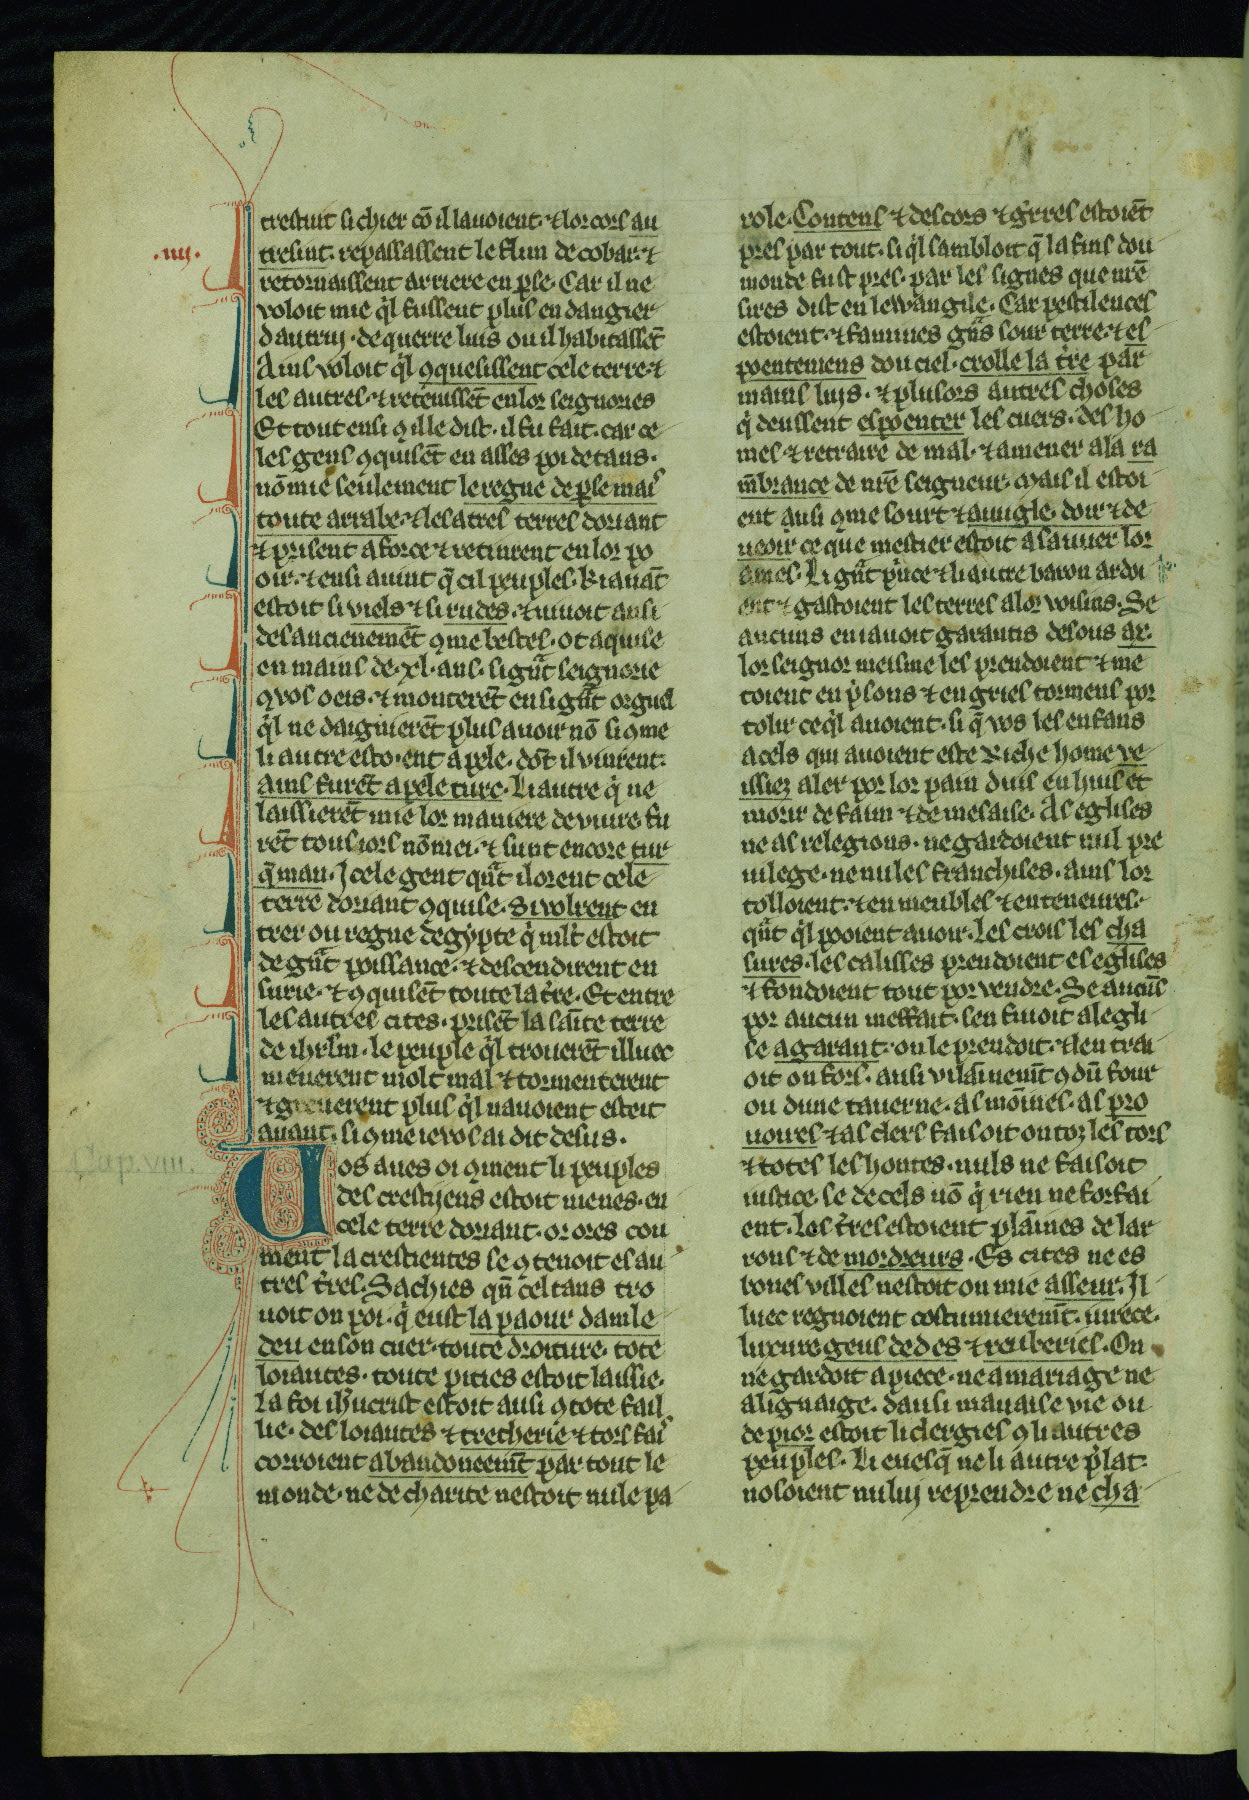 .iiij.
trestut si chier cō il lauoient. ⁊ lor cors au
tresint. repassassent le flun de cobar. ⁊
retornaissent arriere en ꝑse. Car il ne
voloit mie q̄l fussent plus en dangier
dautruj. de querre luis ou il habitassēt
Ains voloit q̄l ꝯquesissent cele terre. ⁊
les autres. ⁊ retenissēt en lor seignories
Et tout ensi ꝯ ille dist. il fu fait. car ce
les gens ꝯquisēt en asses poi de tans.
nō mie seulement le regne de ꝑse mais
toute arrabe. ⁊ les atres terres doriant
⁊ prisent a force ⁊ retinrent en lor po
oir. ⁊ ensi auint q̄ cil peuples. ki auāt
estoit si viels ⁊ si rudes. ⁊ viuoit ausi
desancienemēt ꝯme bestes. ot aquise
en mains de .xl. ans. si gūt seignorie
ꝯ vos oeis. ⁊ monterēt en si gūt orguel
q̄l ne daignierēt plus auoir nō si ꝯme
li autre estoient apele. dōt il vinrent.
Ains furēt apele turc. Li autre q̇ ne
laissierēt mie lor maniere de viure fu
rēt tous iors nōmei. ⁊ sunt encore tur
q̄man. Jcele gent quāt il orent cele
terre doriant ꝯquise. Si volrent en
trer ou regne degypte q̇ mlt̄ estoit
de gūt poissance. ⁊ descendirent en
surie. ⁊ ꝯquisēt toute la t̄re. Et entre
les autres cites. prisēt la sāite terre
de ihrlm̄. le peuple q̄l trouerēt illuec
menerent molt mal ⁊ tormenterent
⁊ greuerent plus q̄l nauoient esteit
auant. si ꝯme ie vos ai dit desus.
Cap. viii.
Uos aues oi ꝯment li peuples
des crestijens estoit menes. en
cele terre doriant. or ores cou
ment la crestientes se ꝯtenoit es au
tres t̄res. Sachies qn̄ cel tans tro
uoit on poi. q̇ eust la paour damle
deu en son cuer. toute droiture. tote
loiautes. toute pities estoit laissie.
la foi ih̄ucrist estoit ausi ꝯ tote fail
lie. desloiautes ⁊ trecherie ⁊ tors fais
corroient abandoneemēt par tout le
monde. ne de charite nestoit nule pa
role. Contens ⁊ descors ⁊ g̃rres estoiēt
pres par tout. si q̄l sambloit q̄ la fins dou
monde fust pres. par les signes que nrē
sires dist en lewangile. Car pestilences
estoient. ⁊ famines gñs sour terre. ⁊ es
poentemens dou ciel. crolle la t̄re par
mains luis. ⁊ plusors autres choses
q̇ deussent espoenter les cuers. des ho
mes. ⁊ retraire de mal. ⁊ amener a la ra
m̄brance de nrē seigneur. Mais il estoi
ent ausi ꝯme sourt ⁊ auugle. doir ⁊ de
ueoir ce que mestier estoit a sauuer lor
ames. Li gūt p̄ince ⁊ li autre baron ardoi
ent ⁊ gastoient les terres a lor voisins. Se
aucuns en iauoit garantis desous ar.
lor seignor meisme les prendoient ⁊ me
toient en p̄sons ⁊ en griels tormens por
tolir ce q̄l auoient. si q̄ vos les enfans
a cels qui auoient este riche home ve
issiez aler por lor pain duis en huis et
morir de faim ⁊ de mesaise. As eglises
ne as relegions. ne gardoient nul pre
uilege. ne nules franchises. ains lor
tolloient. ⁊ en meubles ⁊ en teneures.
quāt q̄l pooient auoir. les crois les cha
sures. les calisses prendoient es eglises
⁊ fondoient tout por vendre. Se aucūs
por aucun meffait. sen fuioit a legli
se a garant. ou le prendoit. ⁊ len trai
oit on fors. ausi vilainemt̄ ꝯ dū four
ou dune tauerne. as moines. as pro
uoires ⁊ as clers faisoit on toz les tors
⁊ totes les hontes. nuls ne faisoit
iustice. se de cels nō q̇ rien ne forfai
ent. les t̄res estoient plaīnes de lar
rons ⁊ de mordreurs. Es cites ne es
bones villes nestoit on mie asseur. Il
luec regnoient costumieremt̄. iurece.
luxure gens de des ⁊ reuberies. On
ne gardoit a piece. ne a mariage ne
a lignaige. dausi mauaise vie ou
de pior estoit li clergies ꝯ li autres
peuples. Li euesq̄ ne li autre p̄lat
nosoient nuluj reprendre ne cha